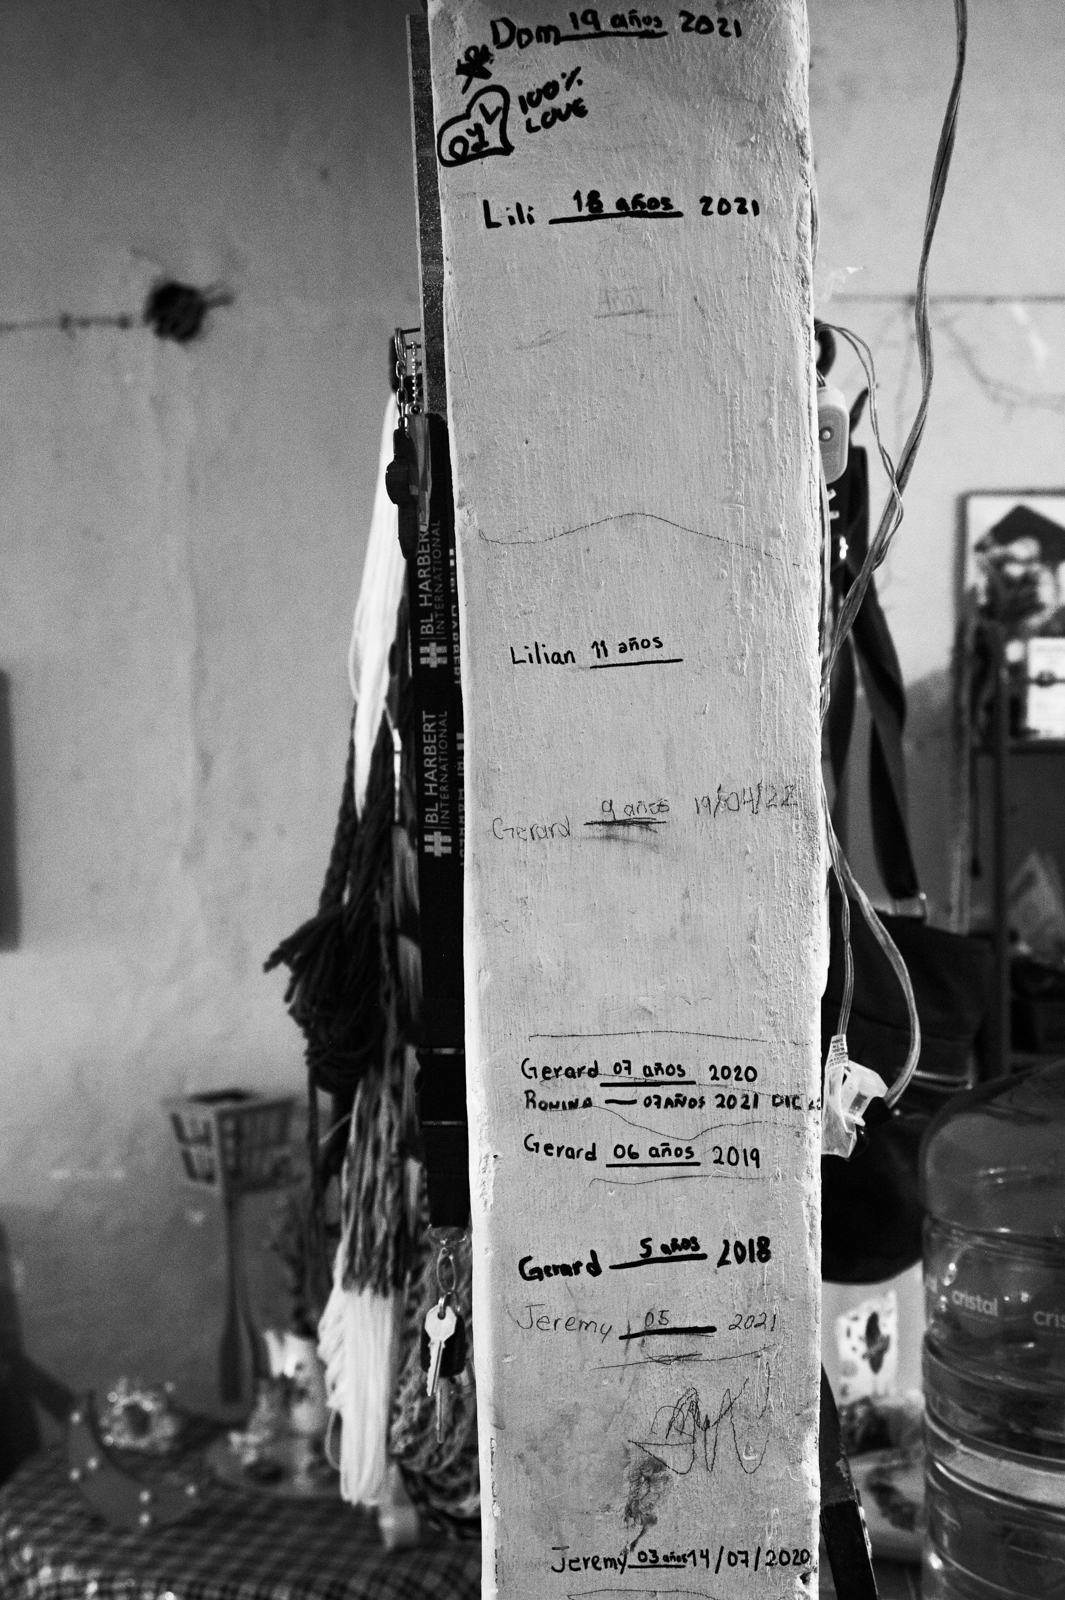 Dom 19 años 2021
100%
LOVE
Lili 18 años 2021
BL HARBERT
INTERNATIONAL
Lilian 11 años
BL HARBERT
INTERNATIONAL
Gerard 9 años 19/04/22
Gerard 07 años 2020
ROMINA — 07 AÑOS 2021 DIC
Gerard 06 años 2019
Gerard 5 años 2018
Jeremy 05 2021
cristal
Jeremy 03 años 14/07/2020